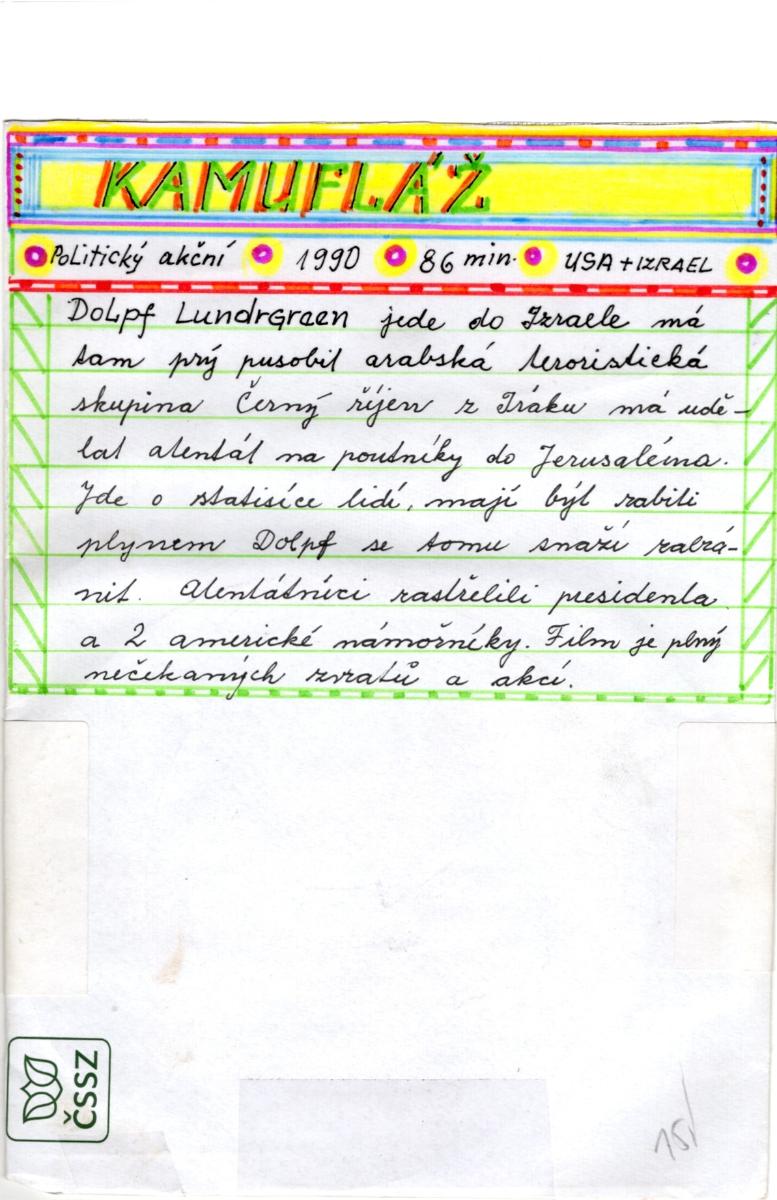 KAMUFLÁŽ
Politický akční 1990 86 min. USA + IZRAEL
Dolpf Lundrgreen jede do Izraele má
tam prý pusobit arabská teroristická
skupina Černý říjen z Iráku má udě-
lat atentát na poutníky do Jerusaléma.
Jde o statisíce lidí, mají být zabiti
plynem Dolpf se tomu snaží zabrá-
nit. Atentátníci zastřelili presidenta
a 2 americké námořníky. Film je plný
nečekaných zvratů a akcí.
ČSSZ
15/